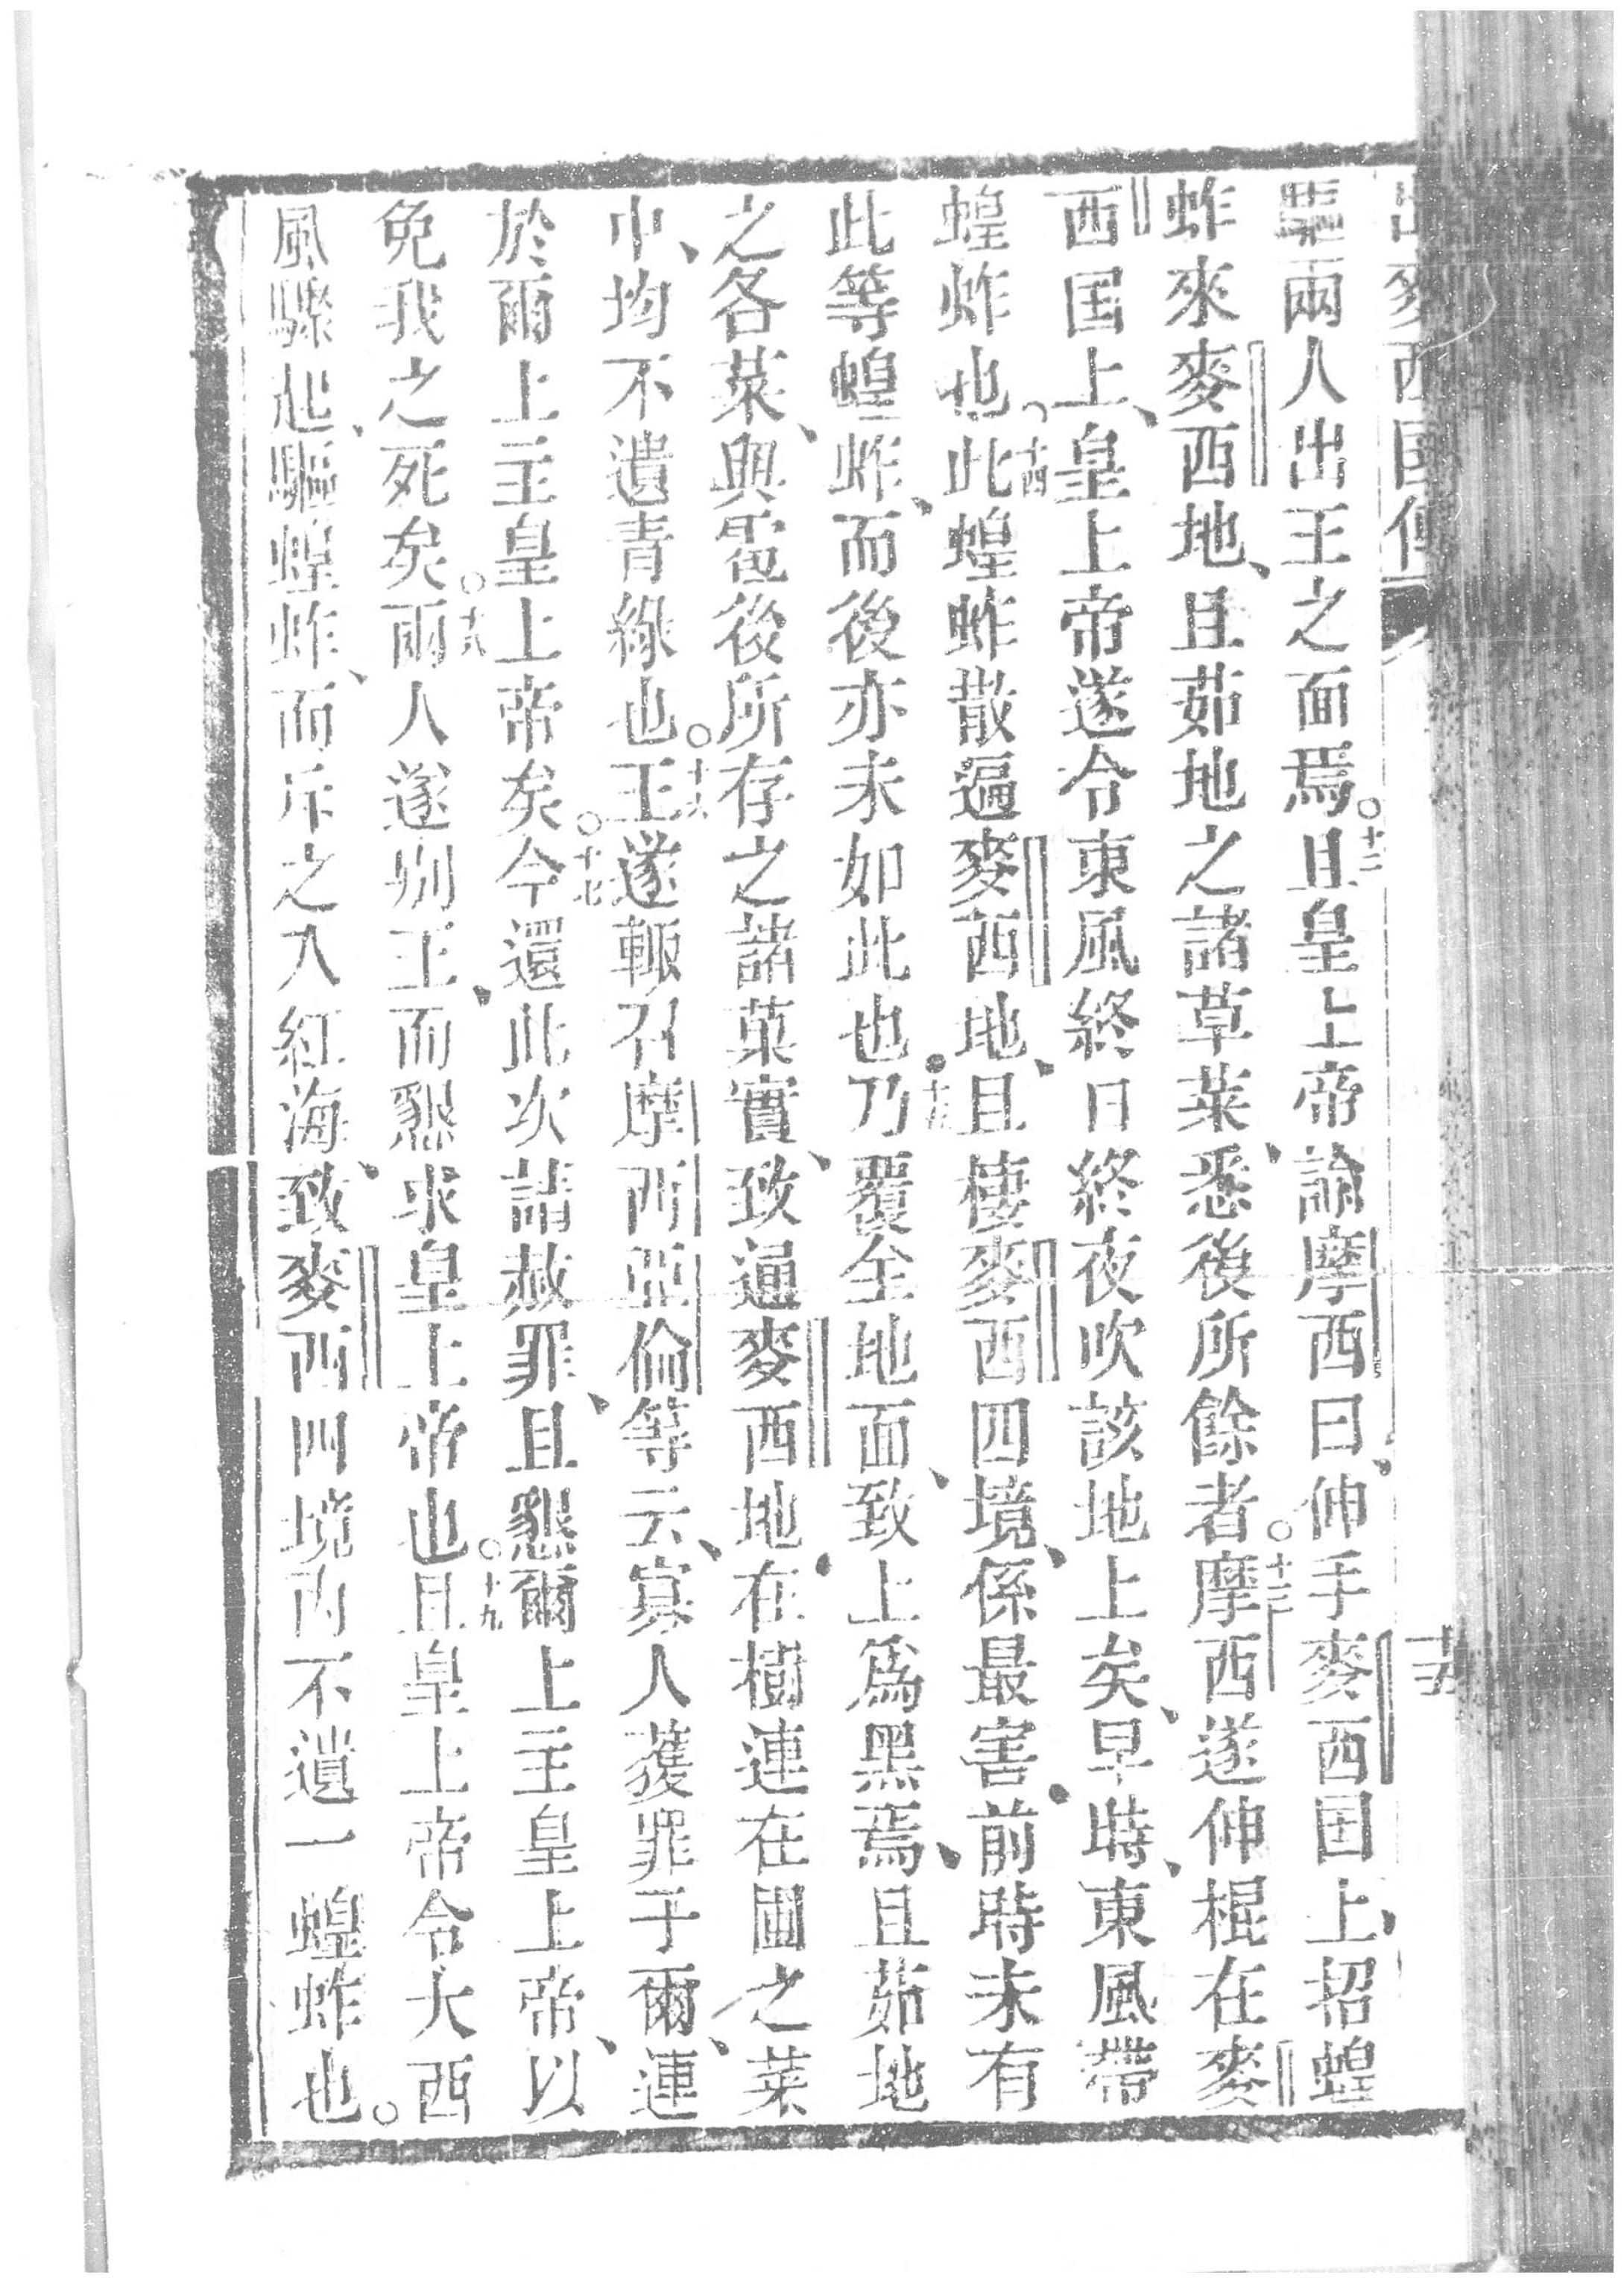 出麥西國傳
驅兩人出王之面焉。十二且皇上帝諭摩西曰、伸手麥西国上、招蝗
蚱來麥西地、且茹地之諸草菜、悉後所餘者。十三摩西遂伸棍在麥
西国上、皇上帝遂令東風終日終夜吹該地上矣、早時、東風帶
蝗蚱也。十四此蝗蚱散遍麥西地、且棲麥西四境、係最害、前時未有
此等蝗蚱、而後亦未如此也。十五乃覆全地面、致上爲黑焉、且茹地
之各菜、與雹後所存之諸菓實、致通麥西地、在樹連在圃之菜
中、均不遺青綠也。十六王遂輙召摩西亞倫等云、寡人獲罪于爾、連
於爾上主皇上帝矣。十七今還此次請赦罪、且懇爾上主皇上帝、以
免我之死矣。十八兩人遂别王、而懇求皇上帝也。十九且皇上帝令大西
風驟起、驅蝗蚱、而斥之入紅海、致麥西四境內不遺一蝗蚱也。